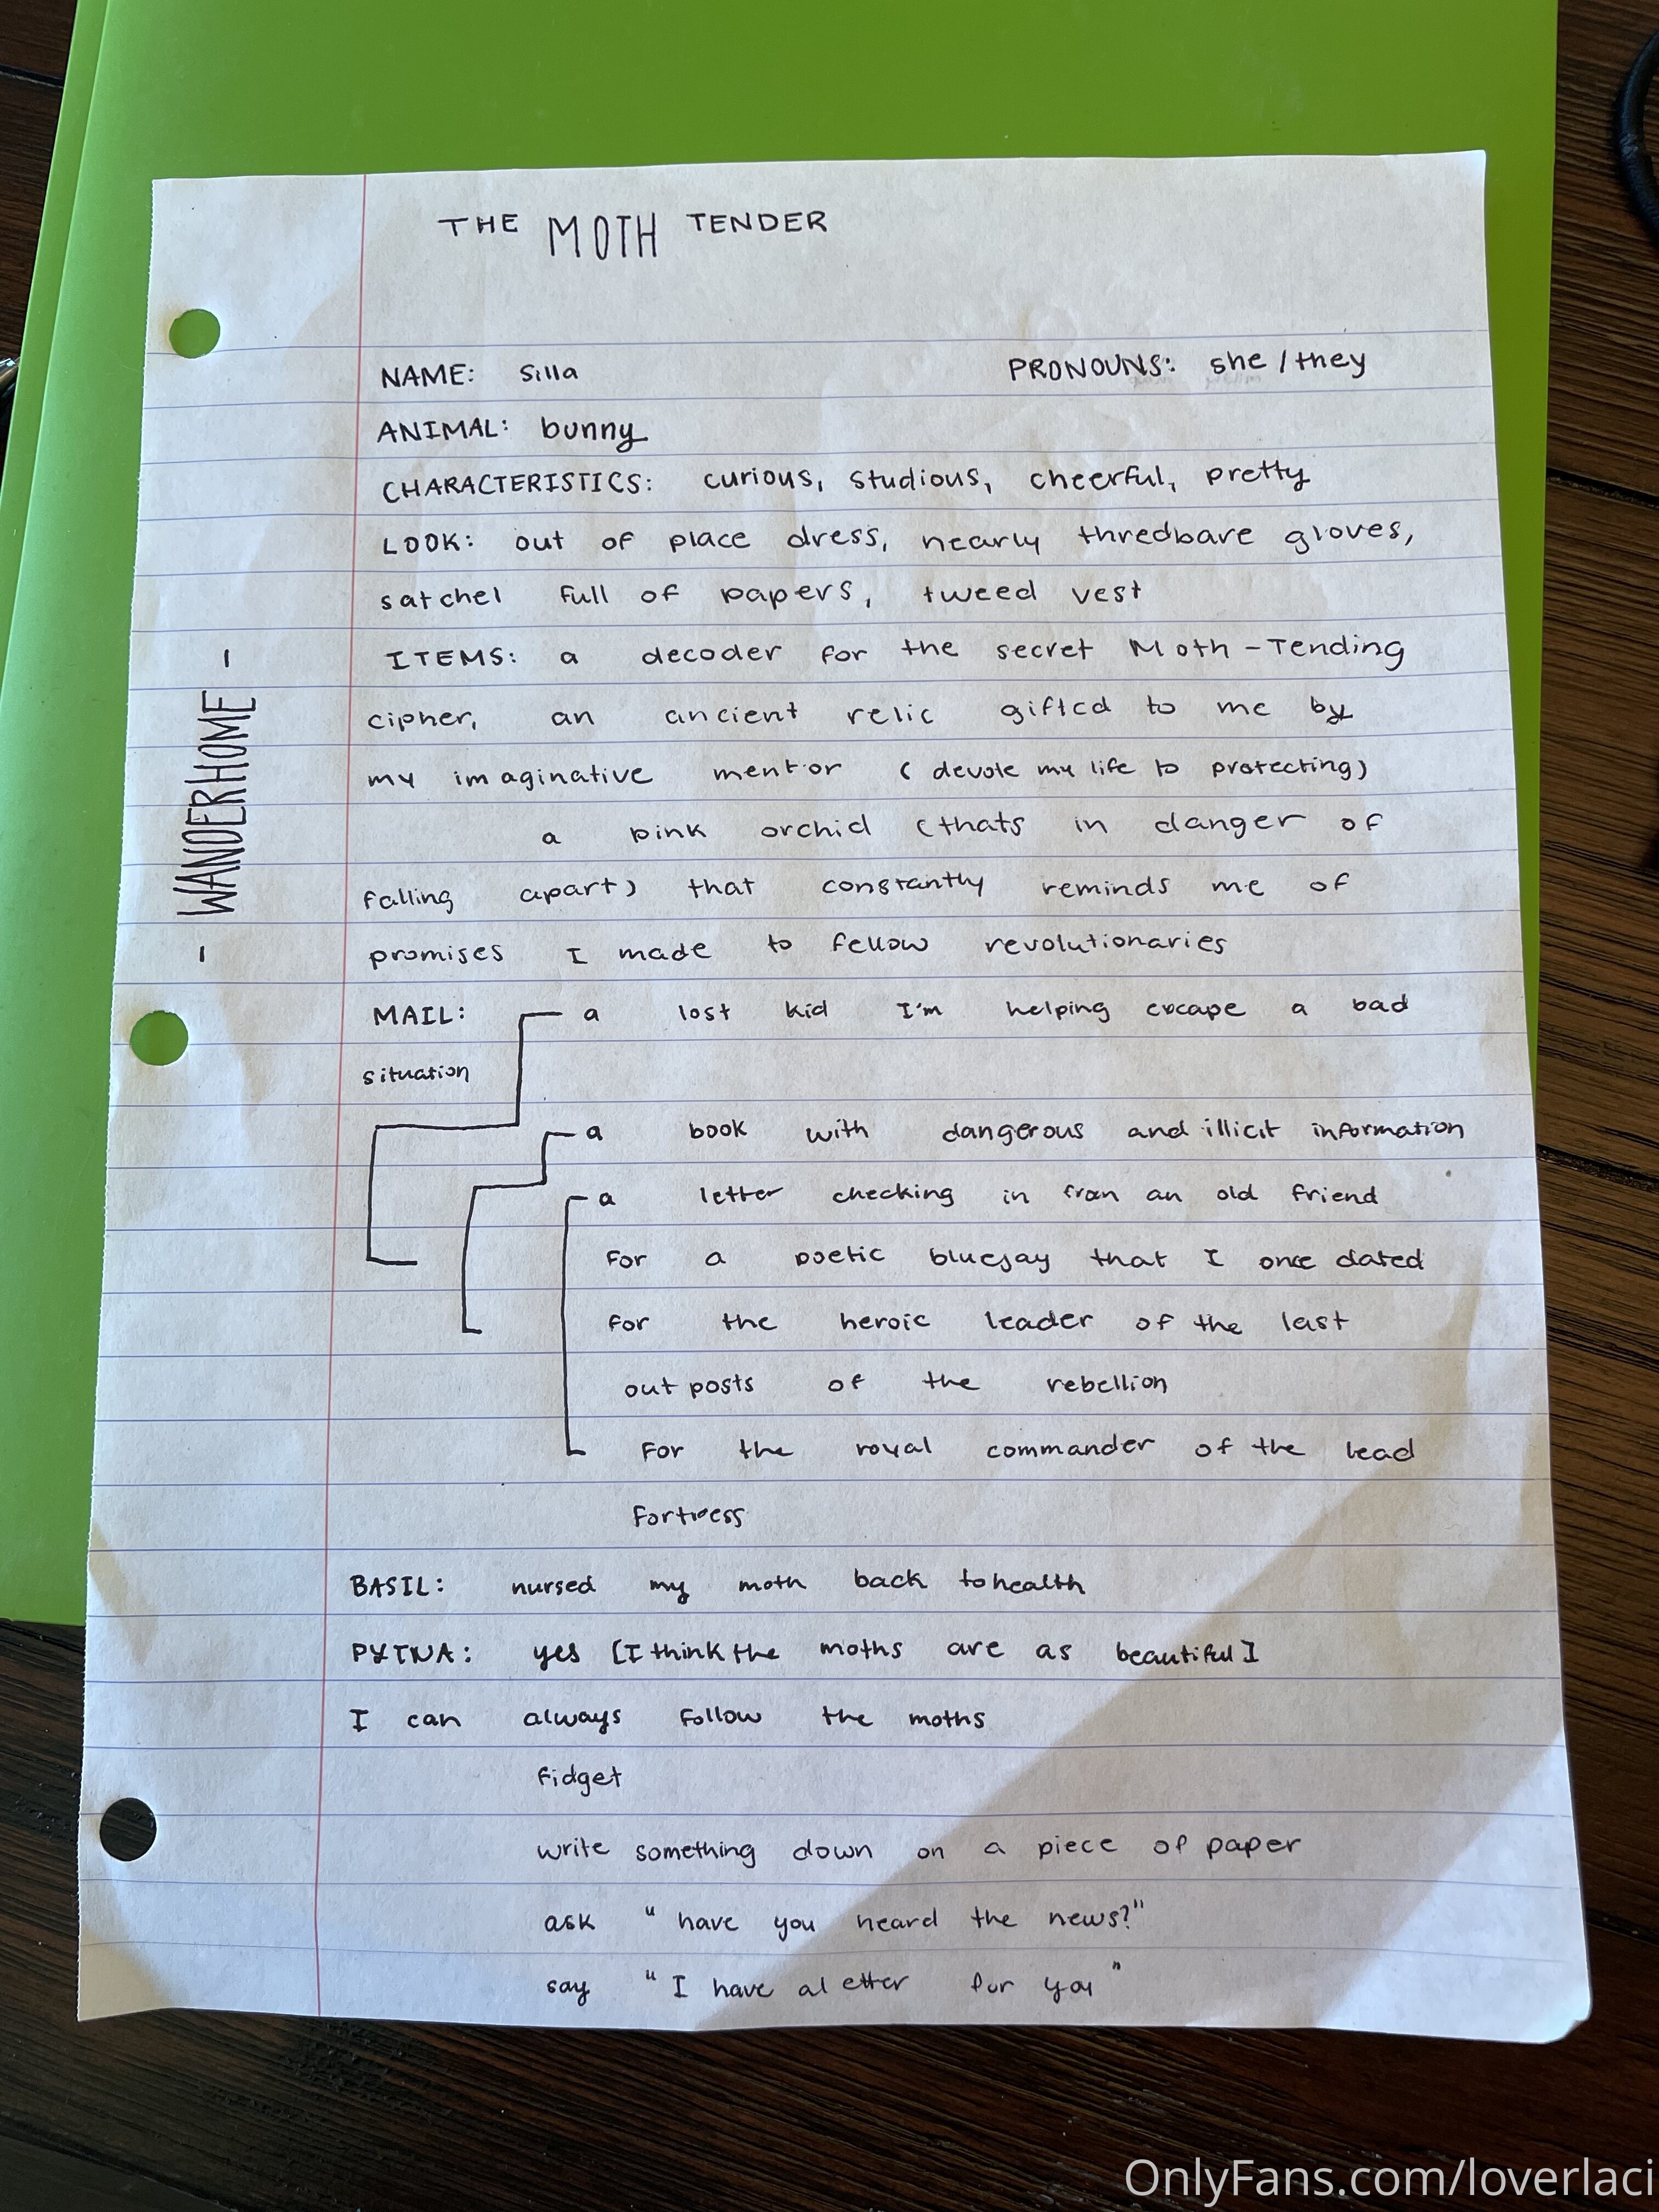 THE MOTH TENDER
NAME: Silla PRONOUNS: she / they
ANIMAL: bunny
CHARACTERISTICS: curious, studious, cheerful, pretty
LOOK: out of place dress, nearly thredbare gloves,
satchel full of papers, tweed vest
- WANDERHOME -
ITEMS: a decoder for the secret Moth-Tending
cipher, an ancient relic gifted to me by
my imaginative mentor (devote my life to protecting)
a pink orchid (thats in danger of
falling apart) that constantly reminds me of
promises I made to fellow revolutionaries
MAIL: a lost kid I'm helping escape a bad
situation
a book with dangerous and illicit information
a letter checking in from an old friend
for a poetic bluejay that I once dated
for the heroic leader of the last
outposts of the rebellion
for the royal commander of the lead
fortress
BASIL: nursed my moth back to health
PYTNA: yes [I think the moths are as beautiful]
I can always follow the moths
fidget
write something down on a piece of paper
ask "have you heard the news?"
say "I have a letter for you"
OnlyFans.com/loverlaci